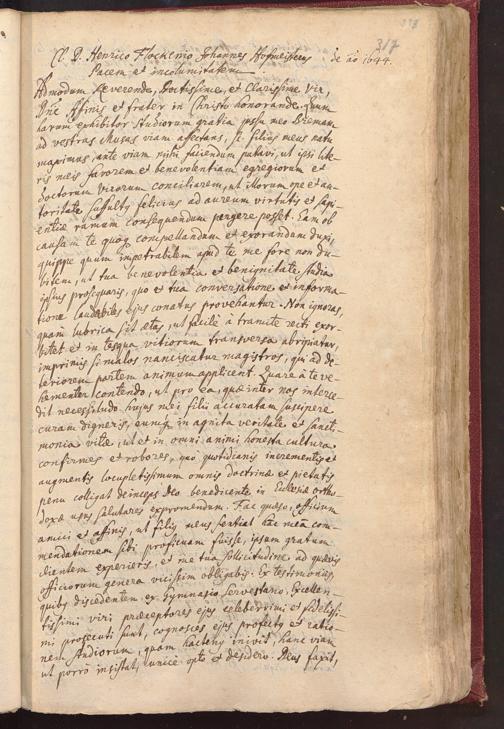 317
Cl. D. Henrico Flockenio Johannes Hofmeisterus de aō 1644
Pacem et incolumitatem
Admodum Reverende, Doctissime, et Clarissime Vir,
Dn̄e Affinis et frater in Christo honorande. Quum
harum exhibitor studiorum gratia jussu meo Bremam
ad vestras Musas viam afectans, sc. filius meus natu
maximus, ante viam mihi faciendum putavi, ut ipsi lite-
ris meis favorem et benevolentiam egregiorum et
doctorum virorum conciliarem, ut illorum ope et au-
toritate suffultus felicius ad aureum virtutis et sapi-
entiæ ramum consequendum pergere posset. Eam ob
causam te quoq compellandum et exorandum duxi,
quippe quum impetrabilem apud te me fore non du-
bitem, ut tua benevolentia et benignitate studia
ipsius prosequaris, quo et tua conversatione et informa-
tione laudabiles ejus conatus provehantur. Non ignoras,
quam lubrica sit ætas, ut facilè à tramite recti exor-
bitet et in tesqua vitiorum transversa abripiatur,
imprimis si malos nanciscatur magistros, qui ad de-
teriorem partem animum applicent. Quare à te ve-
hementer contendo, ut pro ea, quæ inter nos interce-
dit necessitudo hujus mei filii accuratam suscipere
curam digneris, eumq in agnita veritate et sancti-
monia vitæ, ut et in omni animi honesta cultura
confirmes et robores, quò quotidianis incrementis et
augmentis locupletissimum omnis doctrinæ et pietatis
penu colligat deinceps Deo benedicente in Ecclesiæ ortho-
doxæ usus salutares expromendum. Fac quæso, officium
amici et affinis, ut filius meus sentiat hac meâ com-
mendationem sibi proficuam fuisse, ipsum gratum
clientem experieris, et me tua sollicitudine ad quævis
officiorum genera vicissim obligabis. Ex testimoniis,
quibus discedentem ex Gymnasio Servestano, Excellen-
tissimi viri præceptores ejus celeberrimi et fidelissi-
mi prosecuti sunt, cognosces ejus profectus et ratio-
nem studiorum, quam hactenus inivit, hanc viam
ut porrò insistat, unicè opto et desidero. Deus faxit,